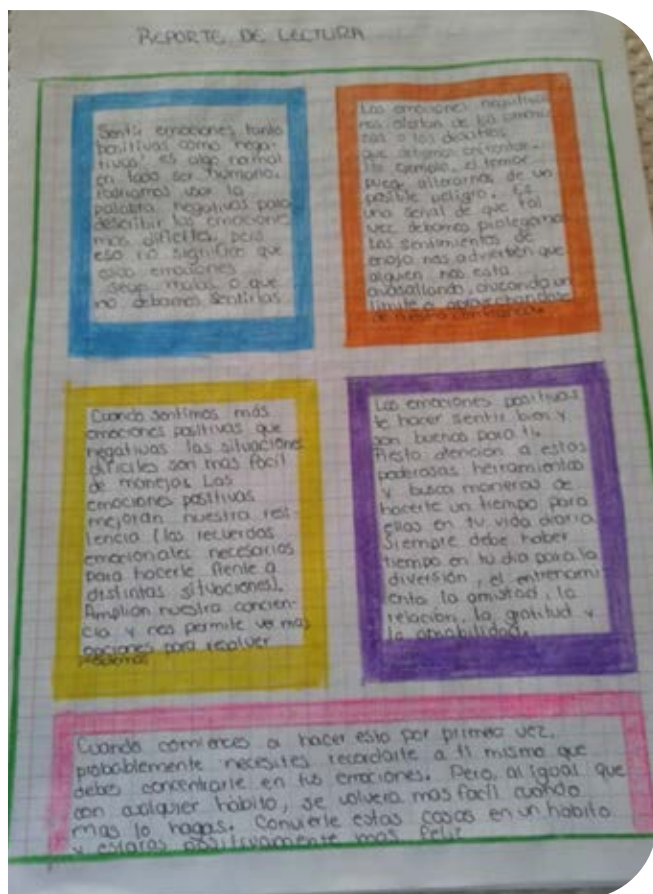 REPORTE DE LECTURA
Sentir emociones tanto
positivas como nega-
tivas es algo normal
en todo ser humano.
usar la
palabra negativas para
describir las emociones
mas dificiles, pero
eso no significa que
esas emociones
sean malas o que
no debamos sentirlas
Las emociones negativas
nos alertan de las amena
zas o los desafios
que debemos enfrentar.
Por ejemplo, el temor
puede alterarnos de un
posible peligro. Es
una señal de que tal
vez debemos protegernos
Los sentimientos de
enojo nos advierten que
alguien nos esta
avasallando, cruzando un
limite o aprovechandose
de nuestra confianza.
Cuando sentimos más
emociones positivas que
negativas las situaciones
dificiles son mas facil
de manejar Las
emociones positivas
mejoran nuestra resi
lencia (los recuerdos
emocionales necesarios
para hacerle frente a
distintas situaciones).
Amplian nuestra concien-
cia y nos permite ver mas
opciones para resolver
problemas
Las emociones positivas
te hacer sentir bien y
son buenos para ti.
Presta atención a estas
poderosas herramientas
y busca maneras de
hacerte un tiempo para
ellas en tu vida diaria
Siempre debe haber
tiempo en tu dia para la
diversión, el entrenami
ento la amistad, la
relación, la gratitud y
la amabilidad.
Cuando comiences a hacer esto por primera vez,
probablemente necesites recordarte a ti mismo que
debes concentrarte en tus emociones. Pero, al igual que
con cualquier hábito, se volvera mas facil cuando
mas lo hagas. Convierte estas cosas en un habito
y estaras positivamente mas feliz